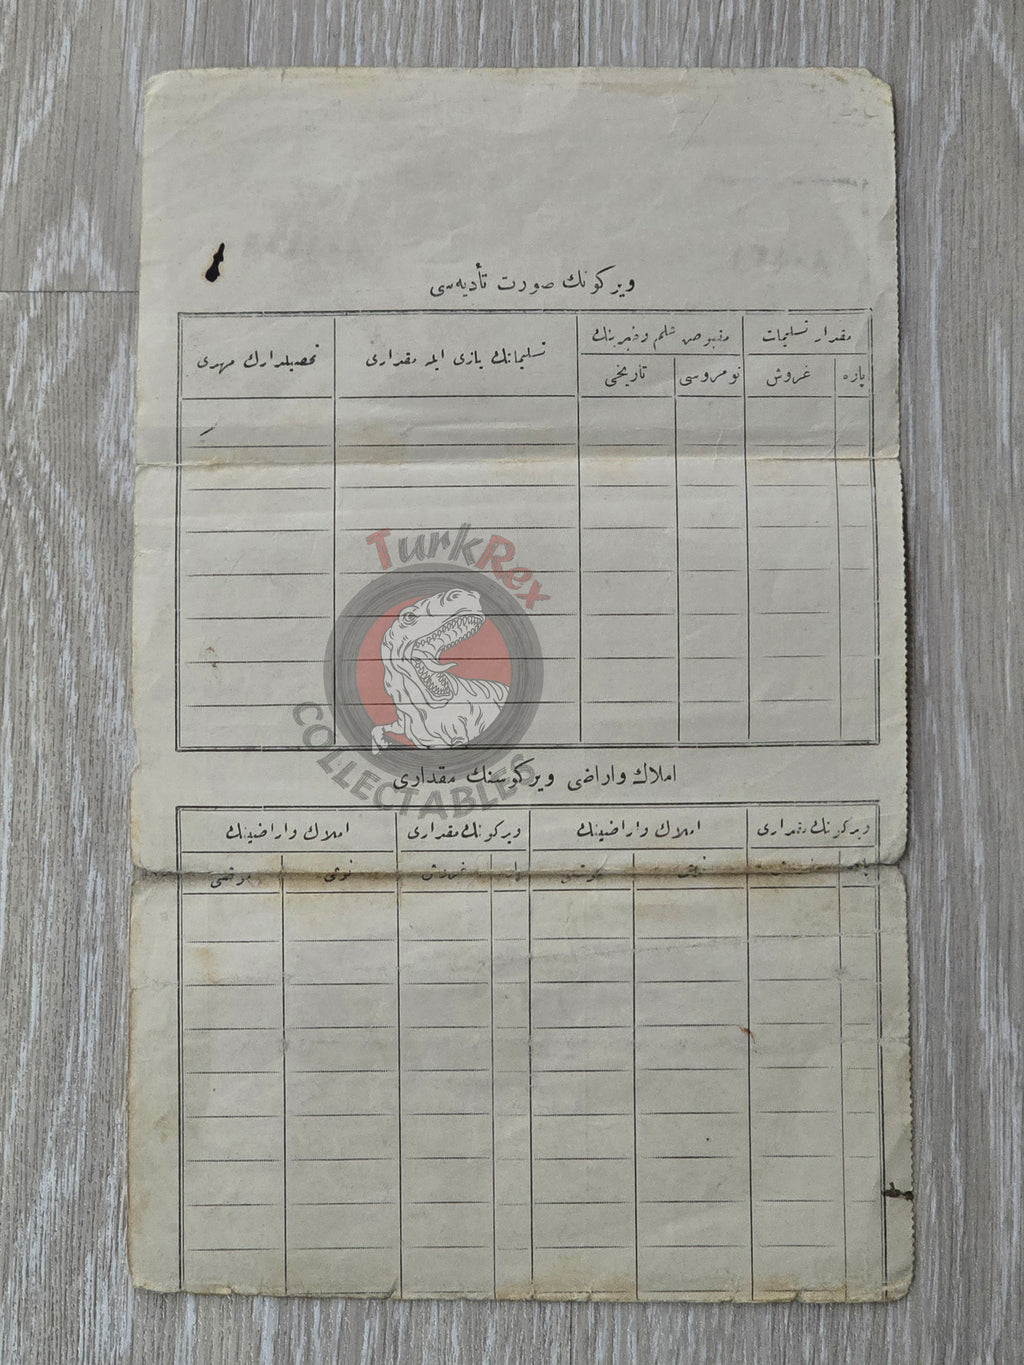 ويركونك صورت تأديه‌سى
مقدار تسليمات
مقبوض علم وخبرينك
تسليماتك يازى ايله مقدارى
تحصيلدارك مهرى
پاره
غروش
نومروسى
تاريخى
TurkRex
COLLECTABLES
املاك واراضى ويركوسنك مقدارى
ويركونك مقدارى
املاك واراضينك
ويركونك مقدارى
املاك واراضينك
پاره
غروش
نوعى
موقعى
پاره
غروش
نوعى
موقعى